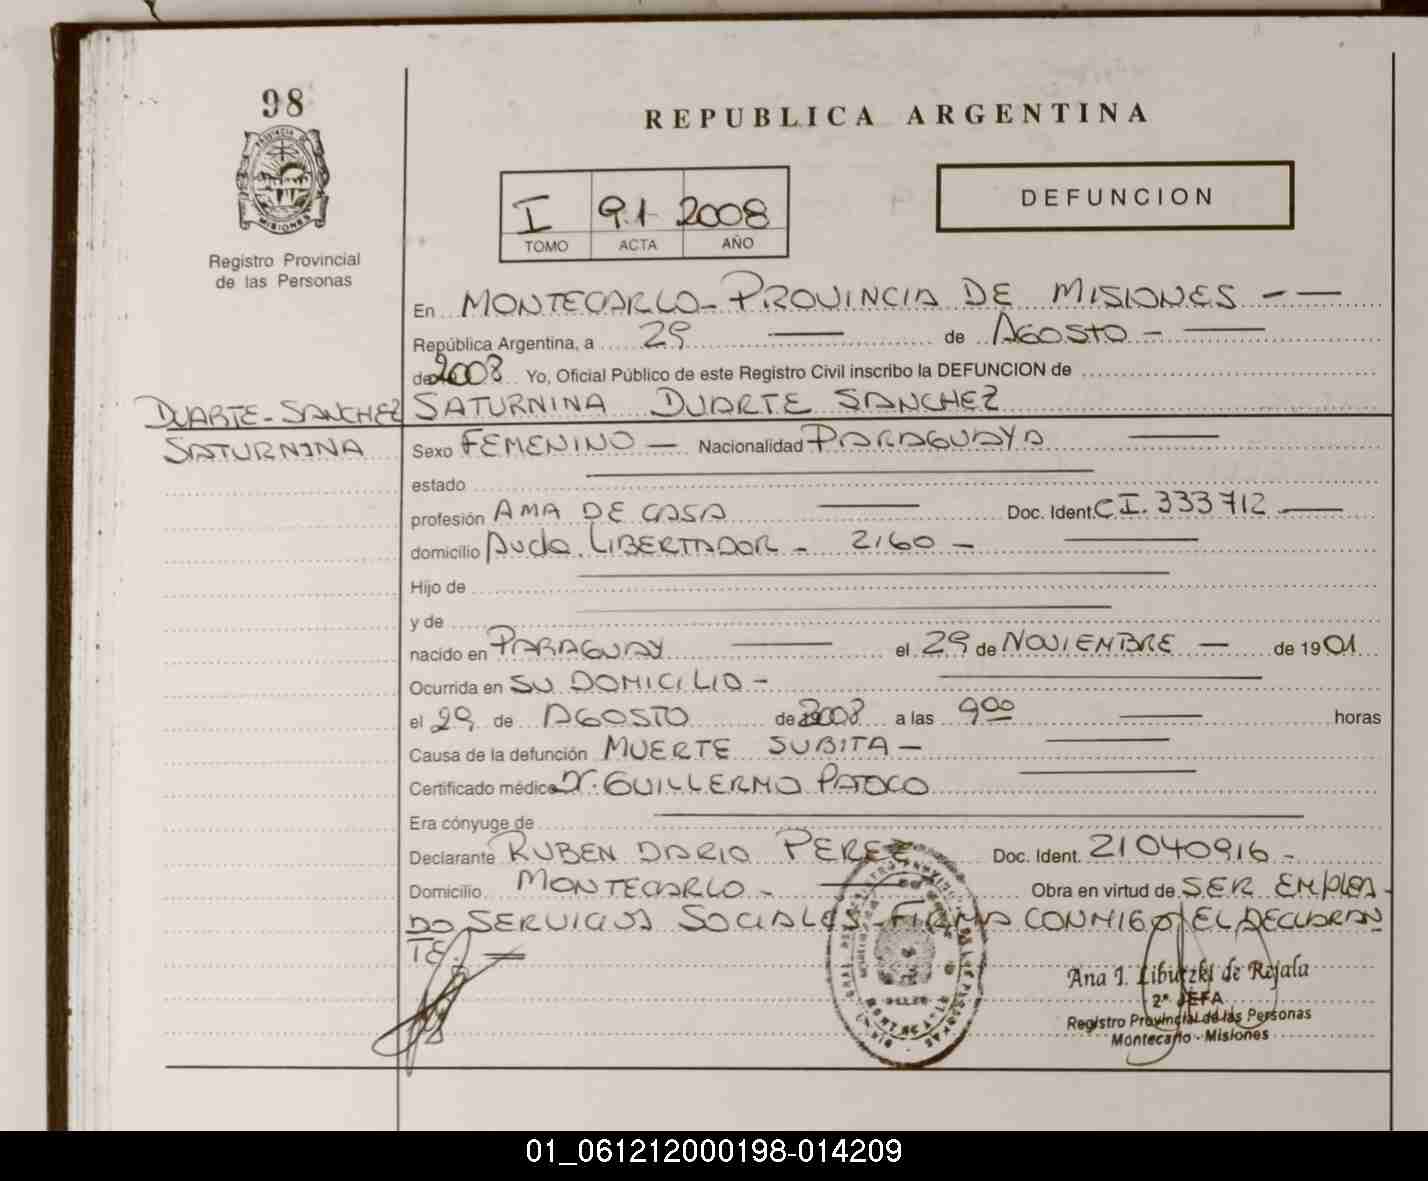 98
REPUBLICA ARGENTINA
DEFUNCION
I 91 2008
TOMO ACTA AÑO
PROVINCIA DE MISIONES
Registro Provincial
de las Personas
En MONTECARLO - PROVINCIA DE MISIONES - —
República Argentina, a 29 — de AGOSTO - —
de 2008 Yo, Oficial Público de este Registro Civil inscribo la DEFUNCION de
DUARTE-SANCHEZ SATURNINA DUARTE SANCHEZ
SATURNINA Sexo FEMENINO — Nacionalidad PARAGUAYA —
estado —
profesión AMA DE CASA — Doc. Ident. C.I. 333712 —
domicilio Avda. LIBERTADOR - 2160 - —
Hijo de —
y de —
nacido en PARAGUAY — el 29 de NOVIEMBRE — de 1901
Ocurrida en SU DOMICILIO - —
el 29 de AGOSTO de 2008 a las 9 00 — horas
Causa de la defunción MUERTE SUBITA — —
Certificado médico Dr. GUILLERMO PATOCO —
Era cónyuge de —
Declarante RUBEN DARIO PEREZ Doc. Ident. 21040916 -
Domicilio MONTECARLO - — Obra en virtud de SER EMPLEA-
DO SERVICIOS SOCIALES - FIRMA CONMIGO EL DECLARAN
TE. —
Ana I. Libutzki de Rejala
2ª JEFA
Registro Provincial de las Personas
Montecarlo - Misiones
01_061212000198-014209